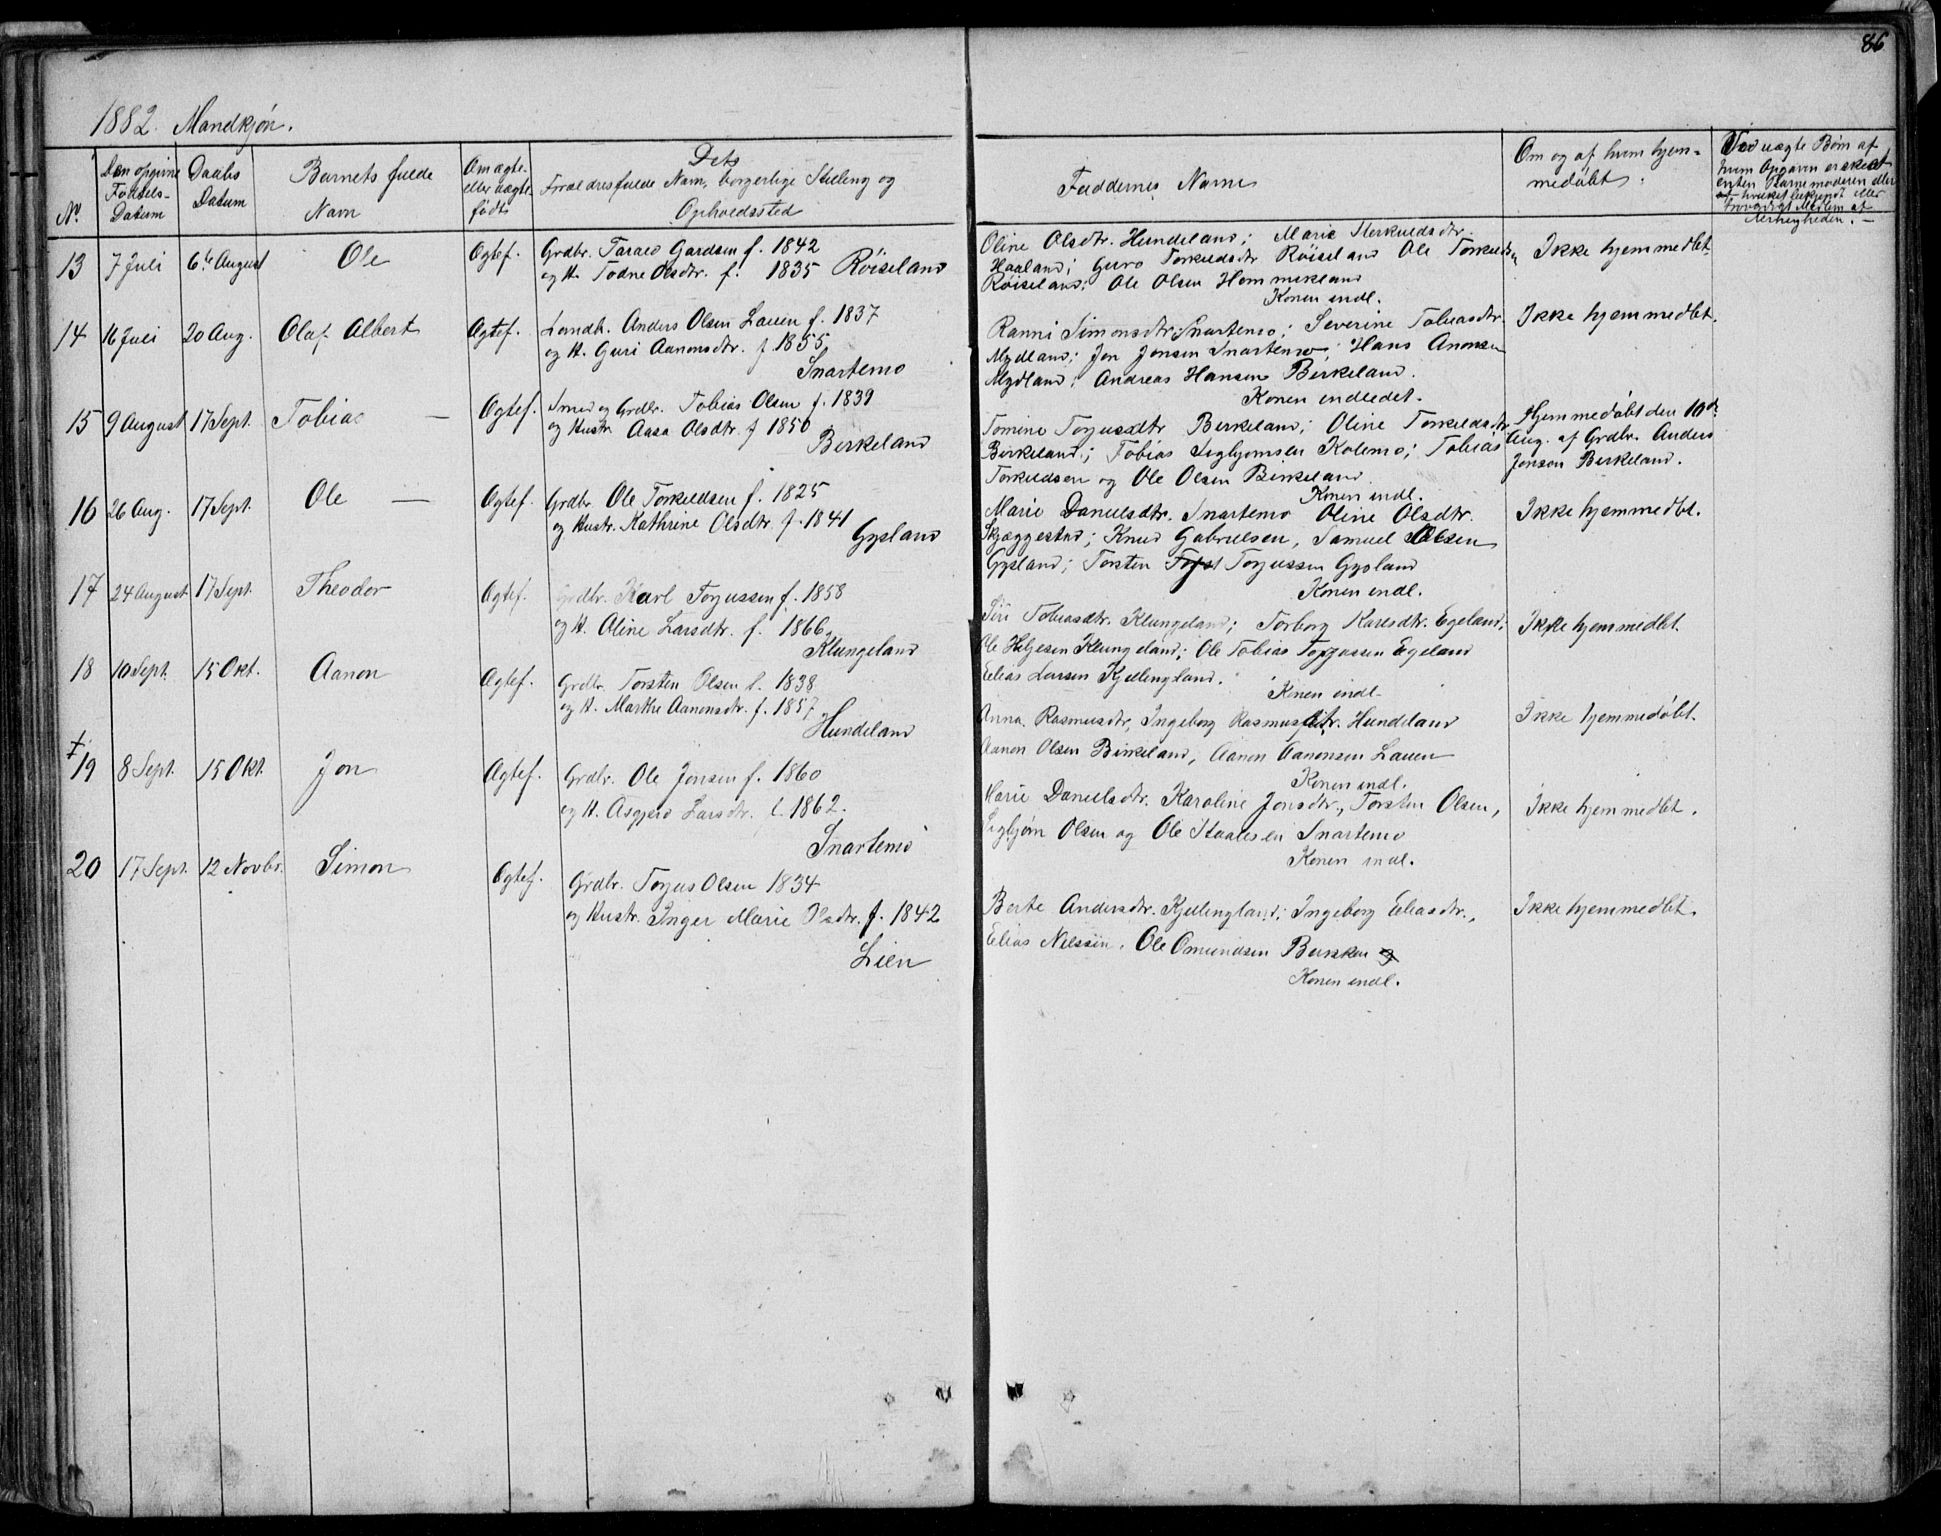 86
1882. Mandkjøn.
No.
Den opgivne Fødsels-Datum
Daabs Datum
Barnets fulde Navn
Om ægte- eller uægte født
Dets Forældres fulde Navn, borgerlige Stilling og Opholdssted
Faddernes Navne
Om og af hvem hjem-medøbt.
Ved uægte Børn af hvem Opgaven er skeet enten Barnemoderen eller et hvilket bekjendt eller troværdigt Medlem af Menigheden. –
13 7 Juli 6te August Ole Ægtef. Grdbr. Tarald Gardsen f. 1842
og H. Todne Olsdtr. f. 1835 Røiseland
Oline Olsdtr. Hundeland; Marie Sterkuldsdtr.
Haaland; Guro Torkildsdtr Røiseland Ole Torkilds
Røiseland; Ole Olsen Hommekland
Konen indl.
Ikke hjemmedbt.
14 16 Juli 20 Aug. Olaf Albert Ægtef. Landh. Anders Olsen Lauen f. 1837
og H. Guri Aanonsdtr. f. 1855
Snartemo
Ranni Simonsdtr. Snartemo; Severine Tobiasdtr.
Mydland; Jon Jonsen Snartemo; Hans Anonsen
Mydland; Andreas Hansen Birkeland.
Konen indledet.
Ikke hjemmedbt.
15 9 August 17 Sept. Tobias — Ægtef. Smed og Grdbr. Tobias Olsen f. 1839
og Hustr. Aasa Olsdtr f 1850
Birkeland
Tomine Torjusdtr Birkeland; Oline Torkildsdtr
Birkeland; Tobias Sigbjornsen Kolemo; Tobias
Torkildsen og Ole Olsen Birkeland.
Konen indl.
Hjemmedøbt den 10de
Aug. af Grdbr. Anders
Jonson Birkeland.
16 26 Aug. 17 Sept. Ole — Ægtef. Grdbr. Ole Torkildsen f. 1825
og Hustr. Kathrine Olsdtr f. 1841
Gysland
Marie Danielsdtr. Snartemo Oline Olsdtr.
Skjæggestad; Knud Gabrielsen, Samuel Olsen
Gysland; Torsten Torjussen Gysland
Konen indl.
Ikke hjemmedbt.
17 24 August 17 Sept. Theodor Ægtef. Grdbr. Karl Torjussen f. 1858
og H. Oline Larsdtr. f. 1866
Klungeland
Siri Tobiasdtr. Klungeland; Torborg Karlsdtr. Egeland,
Ole Helgesen Klungeland; Ole Tobias Torjussen Egeland
Elias Larsen Kjellingland.
Konen indl.
Ikke hjemmedbt.
18 10 Sept. 15 Okt. Aanon Ægtef. Grdbr. Torsten Olsen f. 1838
og H. Marthe Aanonsdtr. f. 1857
Hundeland
Anna Rasmusdtr, Ingeborg Rasmusdtr. Hundeland
Aanon Olsen Birkeland, Aanon Aanonsen Lauen
Konen indl.
Ikke hjemmedøbt.
‡
19 8 Sept. 15 Okt. Jon Ægtef. Grdbr. Ole Jonsen f. 1860
og H. Asgjerd Larsdtr. f. 1862.
Snartemo
Marie Danielsdtr. Karoline Jonsdtr., Torsten Olsen,
Sigbjørn Olsen og Ole Staalesen Snartemo
Konen indl.
Ikke hjemmedbt.
20 17 Sept. 12 Novbr. Simon Ægtef. Grdbr. Torjus Olsen 1834
og Hustr. Inger Marie Olsdtr. f. 1842
Lien
Berte Andersdtr. Kjellingland; Ingeborg Eliasdtr.,
Elias Nilssen, Ole Omundsen Birkeland
Konen indl.
Ikke hjemmedbt.